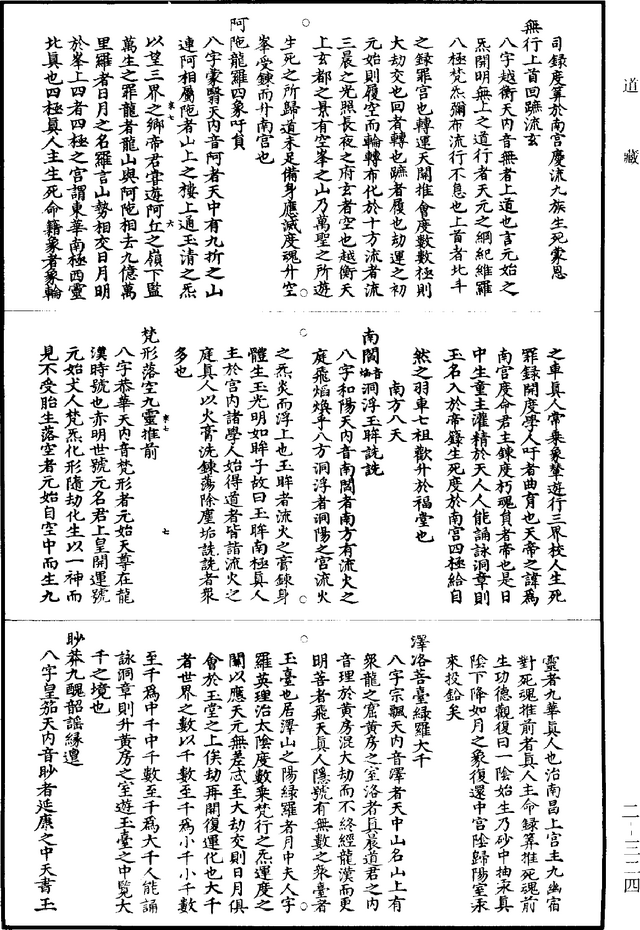 道藏
司録度算於南宮慶流九族生死蒙恩
無行上首回蹠流玄
八字越衡天内音無者上道也言元始之
炁開明無上之道行者天元之綱紀維羅
八極梵炁彌布流行不息也上首者北斗
之録罪宮也轉運天關推會度數數極則
大劫交也回者轉也蹠者履也劫運之初
元始則履空而輪轉布化於十方流者流
三晨之光照長夜之府玄者空也越衡天
上玄都之景有空峯之山乃萬聖之所遊
生死之所歸道未足備身應滅度魂升空
峯受鍊而升南宮也
阿陁龍羅四象吁員
八字蒙翳天内音阿者天中有九折之山
連阿相屬陁者山上之樓上通玉清之炁
以望三界之鄉帝君常遊阿丘之嶺下監
萬生之罪龍者龍山與阿陁相去九億萬
里羅者日月之名羅言山勢相交日月明
於峯上四者四極之宮謂東華南極西靈
北真也四極真人主生死命籍象者象輪
之車真人常乗象輦遊行三界校人生死
罪録開度學人吁者曲育也天帝之諱為
南宮度命君主鍊度朽魂員者帝也是日
中生童主灌精於天人人能誦詠洞章則
玉名入於帝籙生死度於南宮四極給自
然之羽車七祖歡升於福堂也
南方八天
南閻洞浮玉眸詵詵
八字和陽天内音南閻者南方有流火之
庭飛熖煥乎八方洞浮者洞陽之宮流火
之炁炎而浮上也玉眸者流火之膏鍊身
體生玉光明如眸子故曰玉眸南極真人
主於宮内諸學人始得道者皆詣流火之
庭真人以火膏洗鍊蕩除塵垢詵詵者衆
多也
梵形落空九靈推前
八字恭華天内音梵形者元始天尊在龍
漢時號也赤明世號元名君上皇開運號
元始丈人梵炁化形隨劫化生以一神而
見不受胎生落空者元始自空中而生九
靈者九華真人也治南昌上宮主九幽宿
對死魂推前者真人主命録筭推死魂前
生功德觀復曰一陰始生乃砂中抽汞真
陰下降如月之象復還中宮陰歸陽室汞
來投鉛矣
澤洛菩臺緑羅大千
八字宗飄天内音澤者天中山名山上有
衆龍之窟黃房之室洛者真晨道君之内
音理於黃房混大劫而不終經龍漢而更
明菩者飛天真人隱號有無數之衆臺者
玉臺也居澤山之陽緑羅者月中夫人字
羅英理治太陰度數乗梵行之炁運度之
關以應天元無差忒至大劫交則日月俱
會於玉堂之上俟劫再開復運化也大千
者世界之數以千數至千爲小千小千數
至千爲中千中千數至千爲大千人能誦
詠洞章則升黃房之室遊玉臺之中覽大
千之境也
眇莽九醜韶謡緣邅
八字皇笳天内音眇者延康之中天書玉
二-三二四